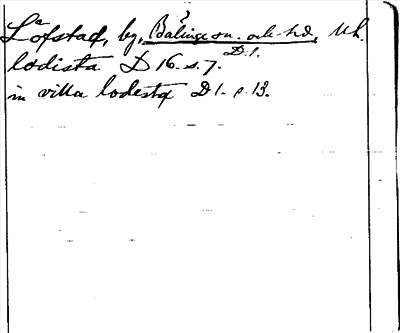 Löfstad, by, Bälinge sn. och hd., Uh.
D.1.
lodista D 16. s. 7.
in villa lodesta D 1. s. 13.